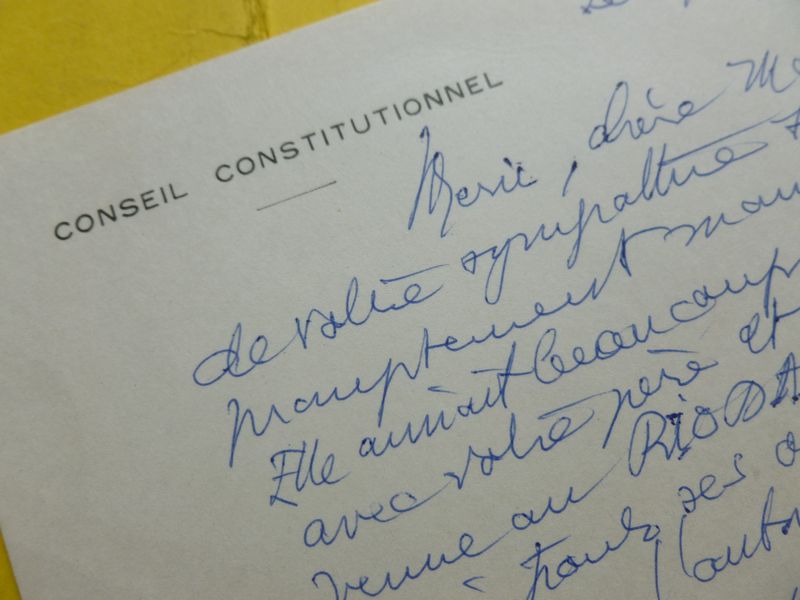 CONSEIL CONSTITUTIONNEL
Merci, chère
de votre sympathie
promptement
Elle aimait beaucoup
avec votre père et
venue au RIO DA
pour ses